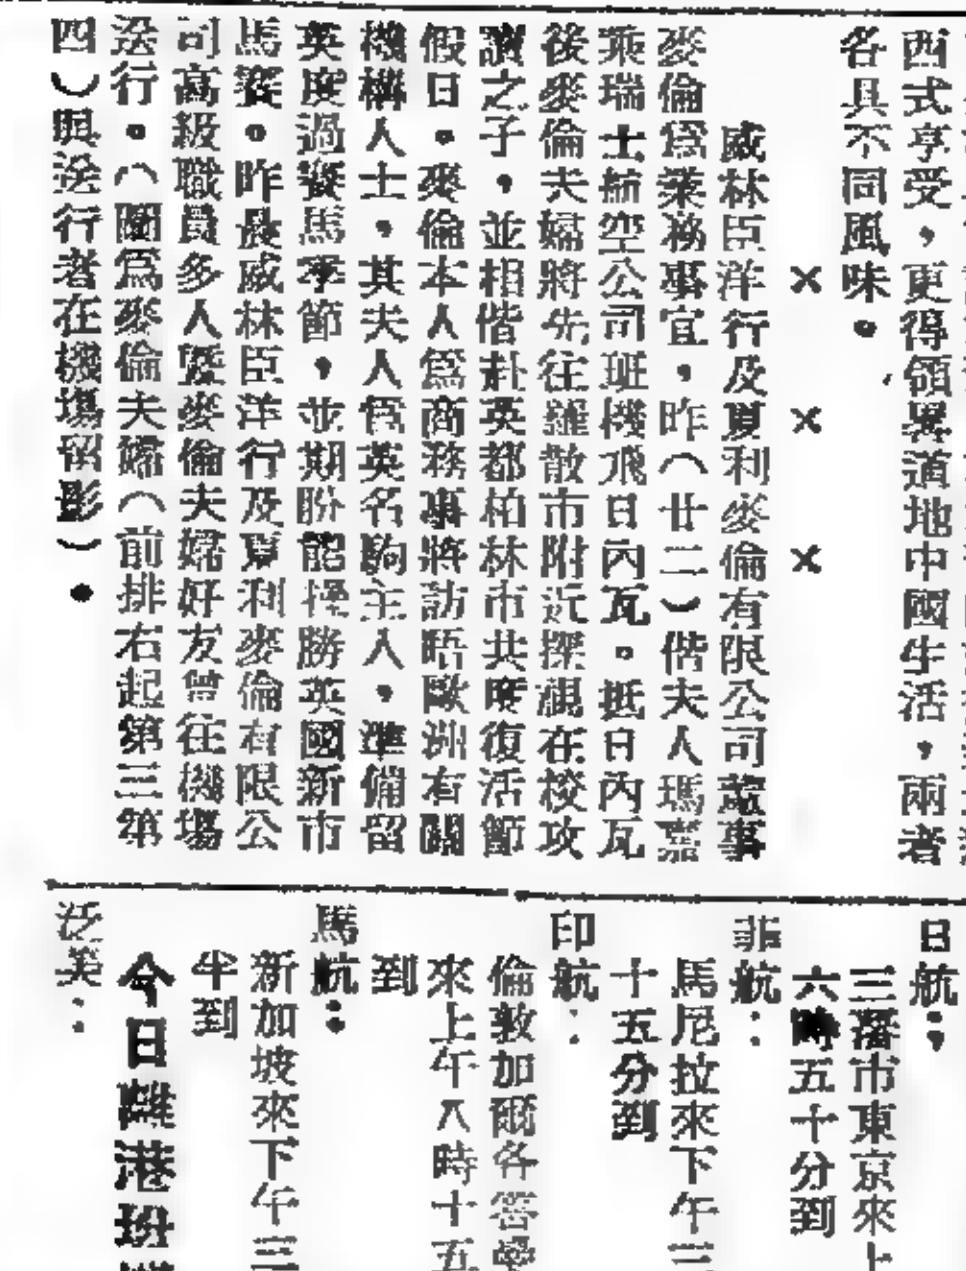 西式享受，更得領畧道地中國生活，兩者
各具不同風味。
× × ×
威林臣洋行及夏利麥倫有限公司董事
麥倫爲業務事宜，昨（廿二）偕夫人瑪嘉
乘瑞士航空公司班機飛日內瓦。抵日內瓦
後麥倫夫婦將先往羅散市附近探視在校攻
讀之子，並相偕赴英都柏林市共度復活節
假日。麥倫本人爲商務事將訪晤歐洲有關
機構人士，其夫人爲英名駒主人，準備留
英度過賽馬季節，並期盼能操勝英國新市
馬賽。昨晨威林臣洋行及夏利麥倫有限公
司高級職員多人暨麥倫夫婦好友曾往機塲
送行。（圖爲麥倫夫婦（前排右起第三第
四）與送行者在機塲留影）●
日航：
三藩市東京來上
六時五十分到
菲航：
馬尼拉來下午三
十五分到
印航：
倫敦加爾各答曼
來上午八時十五
到
馬航：
新加坡來下午三
半到
今日離港班機
泛美：